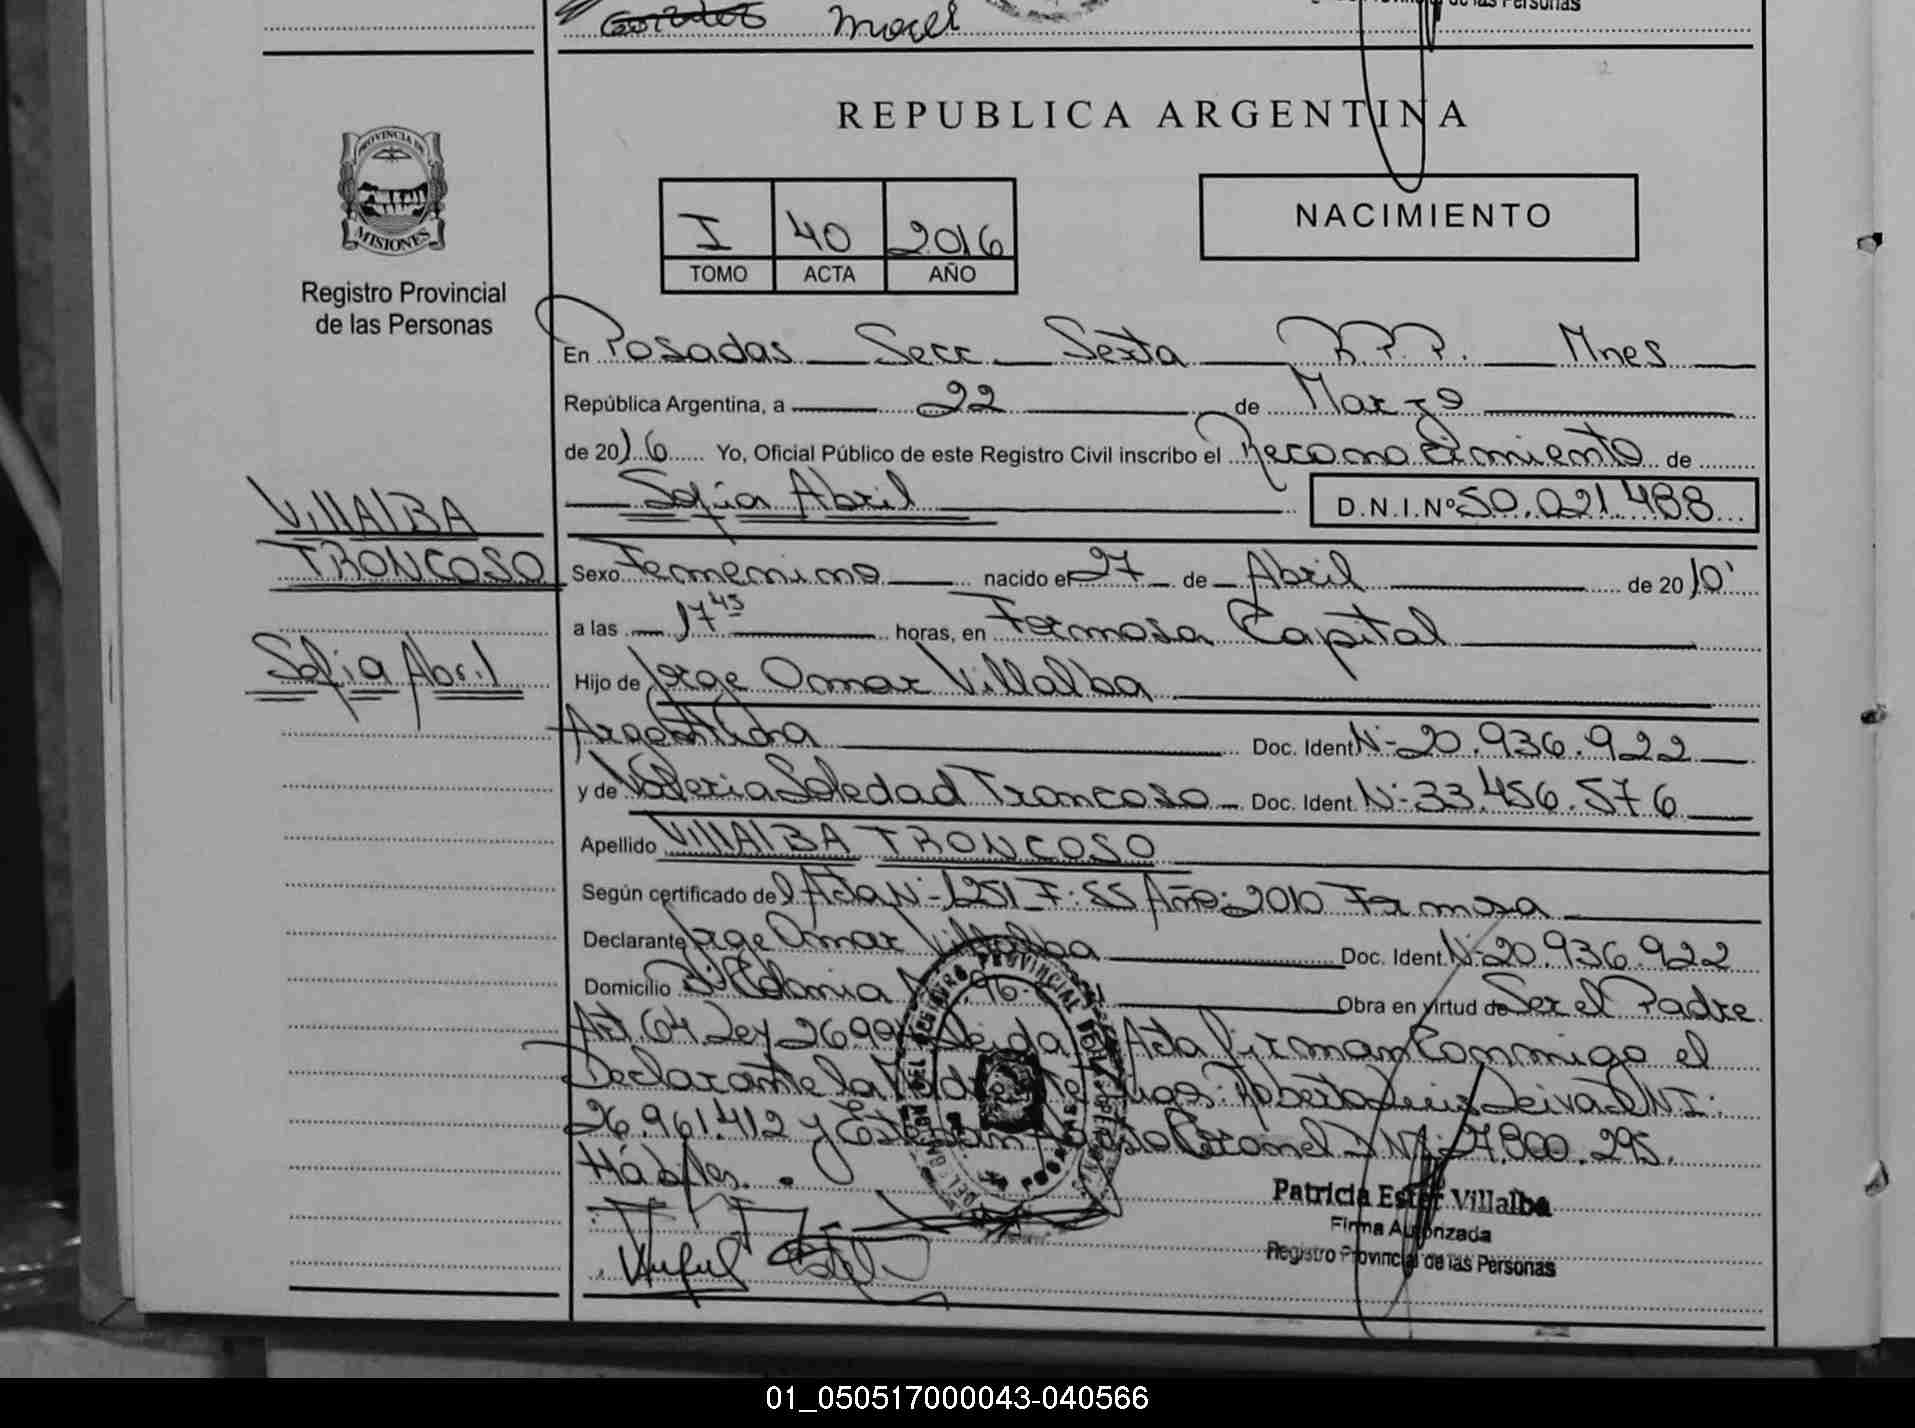 Morel
REPUBLICA ARGENTINA
PROVINCIA DE
MISIONES
Registro Provincial
de las Personas
I 40 2016
TOMO ACTA AÑO
NACIMIENTO
En Posadas Secc Sexta R.P.P. Mnes
República Argentina, a 22 de Marzo
de 2016 Yo, Oficial Público de este Registro Civil inscribo el Reconocimiento de
Sofia Abril D.N.I.Nº 50.021.488
VIllAlBA
TRONCOSO
Sofia Abril
Sexo Femenino nacido el 27 de Abril de 2010
a las 17 45 horas, en Formosa Capital
Hijo de Jorge Omar Villalba
Argentina Doc. Ident. Nº 20.936.922
y de Valeria Soledad Troncoso Doc. Ident. Nº 33.456.576
Apellido VIllAlBA TRONCOSO
Según certificado del Acta Nº 1251 F: 55 Año: 2010 Formosa
Declarante Jorge Omar Villalba Doc. Ident. Nº 20.936.922
Domicilio Bº Colonia 96 Obra en virtud de Ser el Padre
Art. 64 Ley 26.994 Leida Acta firman Conmigo el
Declarante la Madre Testigos: Roberto Luis Leiva DNI:
26.961.412 y Esteban Coronel DNI: 27.800.295.
Hábiles.
Patricia Ester Villalba
Firma Autorizada
Registro Provincial de las Personas
01_050517000043-040566